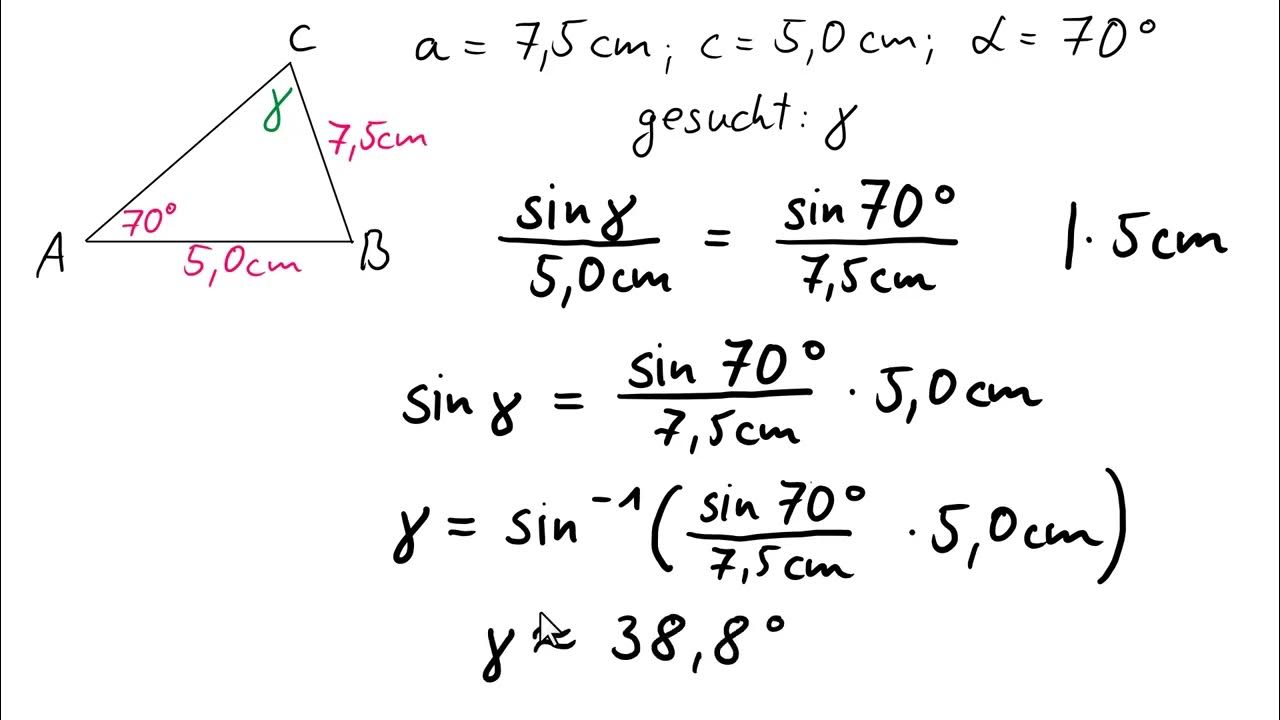 C
γ
7,5cm
70°
A
5,0cm
B
a = 7,5cm; c = 5,0cm; α = 70°
gesucht: γ
sin γ / 5,0cm = sin 70° / 7,5cm | · 5cm
sin γ = sin 70° / 7,5cm · 5,0cm
γ = sin⁻¹ ( sin 70° / 7,5cm · 5,0cm )
γ ≈ 38,8°